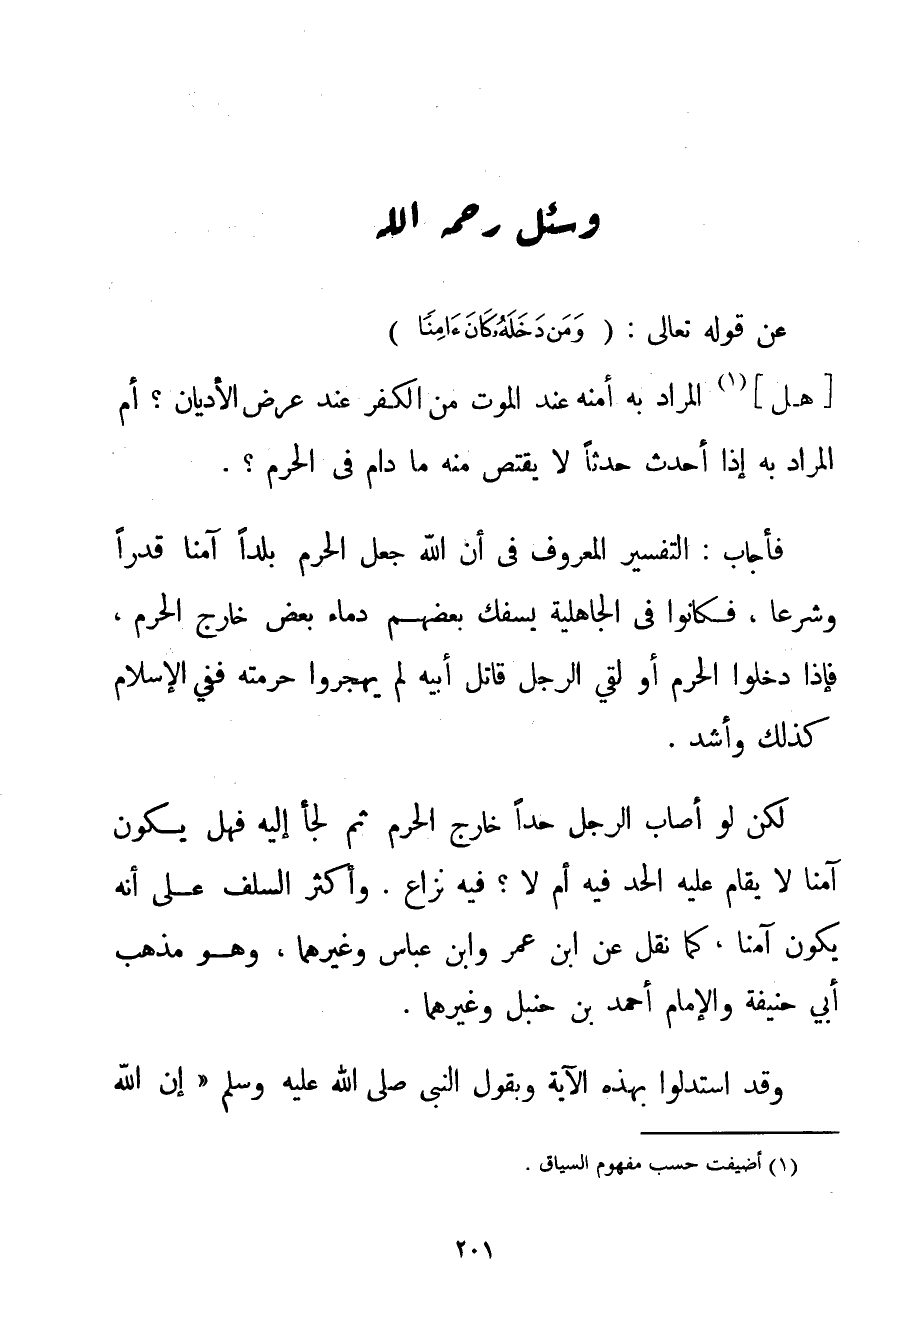 وسئل رحمه الله
عن قوله تعالى : ( وَمَن دَخَلَهُۥ كَانَ ءَامِنًا )
[ هـل ] (١) المراد به أمنه عند الموت من الكفر عند عرض الأديان ؟ أم
المراد به إذا أحدث حدثاً لا يقتص منه ما دام فى الحرم ؟ .
فأجاب : التفسير المعروف فى أن اللّه جعل الحرم بلداً آمنا قدراً
وشرعا ، فـكانوا فى الجاهلية يسفك بعضهـم دماء بعض خارج الحرم ،
فإذا دخلوا الحرم أو لقي الرجل قاتل أبيه لم يهجروا حرمته ففي الإسلام
كذلك وأشد .
لكن لو أصاب الرجل حداً خارج الحرم ثم لجأ إليه فهل يـكون
آمنا لا يقام عليه الحد فيه أم لا ؟ فيه نزاع . وأكثر السلف عـلى أنه
يكون آمنا ، كما نقل عن ابن عمر وابن عباس وغيرهما ، وهـو مذهب
أبي حنيفة والإمام أحمد بن حنبل وغيرهما .
وقد استدلوا بهذه الآية وبقول النبى صلى الله عليه وسلم « إن اللّه
(١) أضيفت حسب مفهوم السياق .
٢٠١